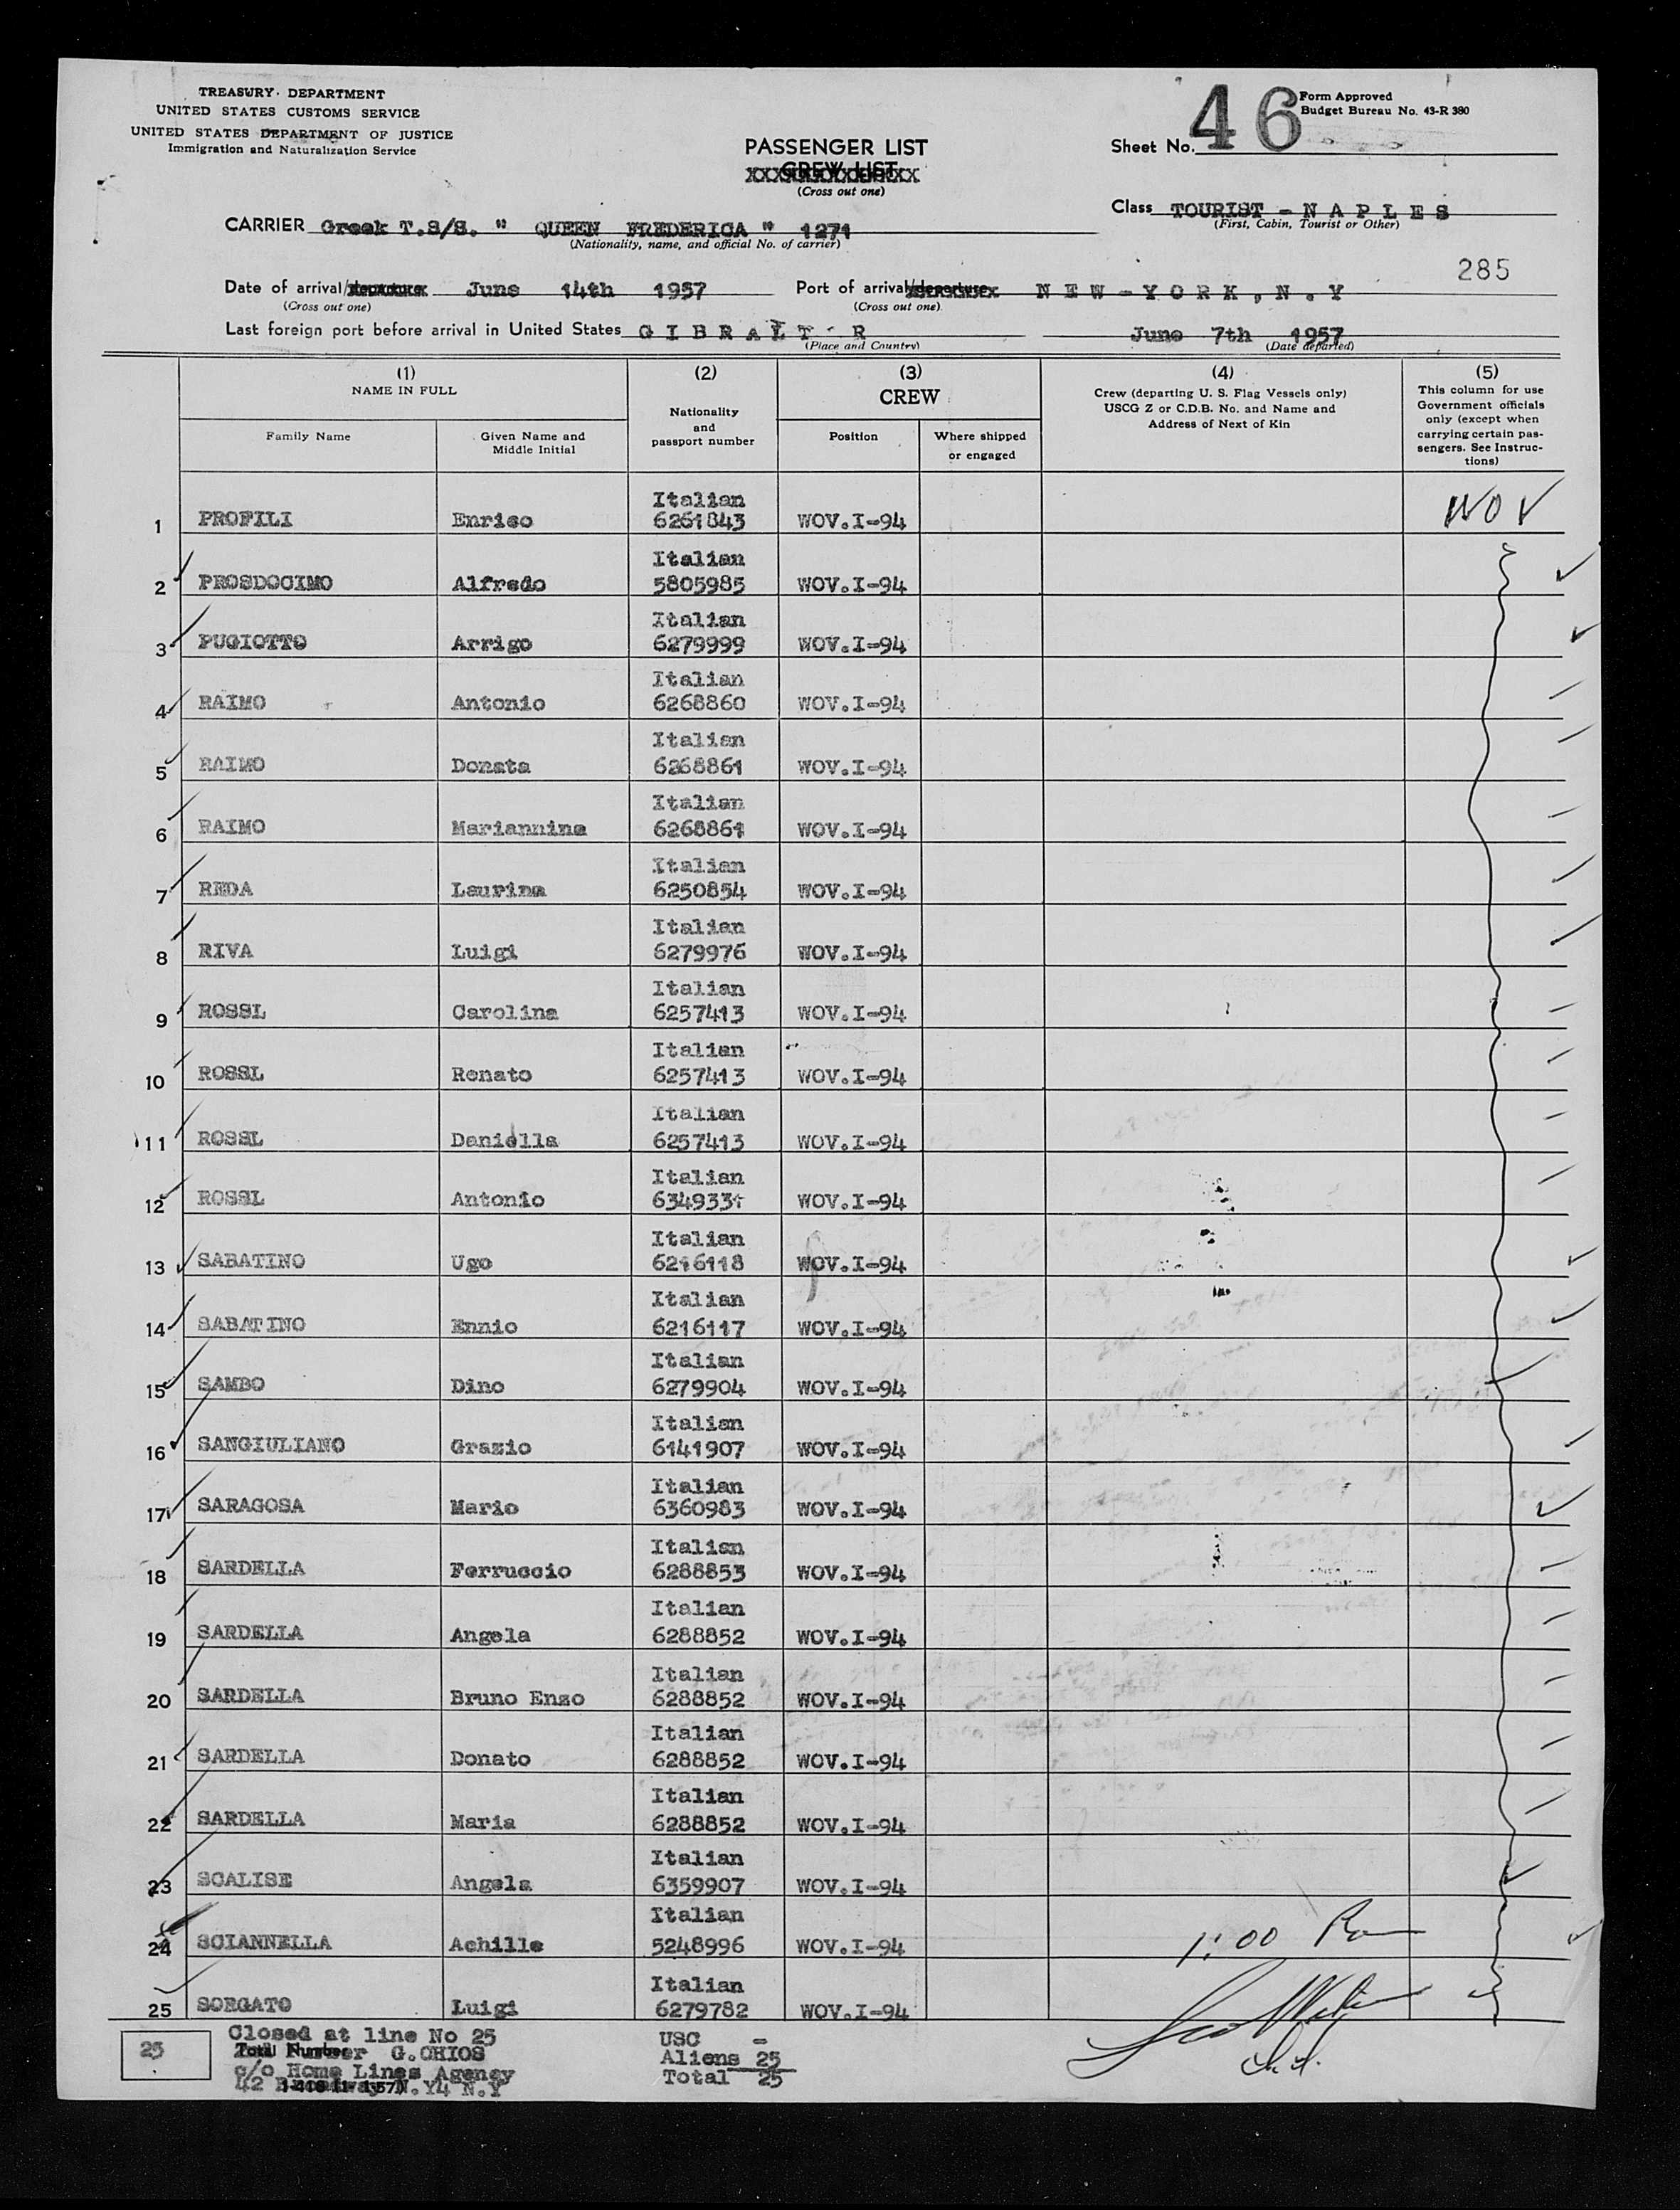 TREASURY DEPARTMENT
UNITED STATES CUSTOMS SERVICE
UNITED STATES DEPARTMENT OF JUSTICE
Immigration and Naturalization Service
Form Approved
Budget Bureau No. 43-R 380
Sheet No. 46
PASSENGER LIST
CREW LIST
(Cross out one)
Class TOURIST - NAPLES
(First, Cabin, Tourist or Other)
CARRIER Greek T.S/S. " QUEEN FREDERICA " 1271
(Nationality, name, and official No. of carrier)
285
Date of arrival/departure June 14th 1957 Port of arrival/departure NEW-YORK, N.Y
(Cross out one) (Cross out one)
Last foreign port before arrival in United States GIBRALT R June 7th 1957
(Place and Country) (Date departed)
(1) NAME IN FULL
Family Name
Given Name and Middle Initial
(2)
Nationality and passport number
(3)
CREW
Position
Where shipped or engaged
(4)
Crew (departing U. S. Flag Vessels only)
USCG Z or C.D.B. No. and Name and
Address of Next of Kin
(5)
This column for use
Government officials
only (except when
carrying certain pas-
sengers. See Instruc-
tions)
1 PROFILI Enrico Italian 6261843 WOV.I-94 WOV
2 PROSDOCIMO Alfredo Italian 5805985 WOV.I-94
3 PUGIOTTO Arrigo Italian 6279999 WOV.I-94
4 RAIMO Antonio Italian 6268860 WOV.I-94
5 RAIMO Donata Italian 6268861 WOV.I-94
6 RAIMO Mariannina Italian 6268861 WOV.I-94
7 REDA Laurina Italian 6250854 WOV.I-94
8 RIVA Luigi Italian 6279976 WOV.I-94
9 ROSSL Carolina Italian 6257413 WOV.I-94
10 ROSSL Renato Italian 6257413 WOV.I-94
11 ROSSL Daniella Italian 6257413 WOV.I-94
12 ROSSL Antonio Italian 6349331 WOV.I-94
13 SABATINO Ugo Italian 6216118 WOV.I-94
14 SABATINO Ennio Italian 6216117 WOV.I-94
15 SAMBO Dino Italian 6279904 WOV.I-94
16 SANGIULIANO Grazio Italian 6141907 WOV.I-94
17 SARAGOSA Mario Italian 6360983 WOV.I-94
18 SARDELLA Ferruccio Italian 6288853 WOV.I-94
19 SARDELLA Angela Italian 6288852 WOV.I-94
20 SARDELLA Bruno Enzo Italian 6288852 WOV.I-94
21 SARDELLA Donato Italian 6288852 WOV.I-94
22 SARDELLA Maria Italian 6288852 WOV.I-94
23 SCALISE Angela Italian 6359907 WOV.I-94
24 SCIANNELLA Achille Italian 5248996 WOV.I-94 1:00 Pm
25 SORGATO Luigi Italian 6279782 WOV.I-94
25
Closed at line No 25
Total Number G.CHIOS
c/o Home Lines Agency
42 Broadway N.Y4 N.Y
USC -
Aliens 25
Total 25